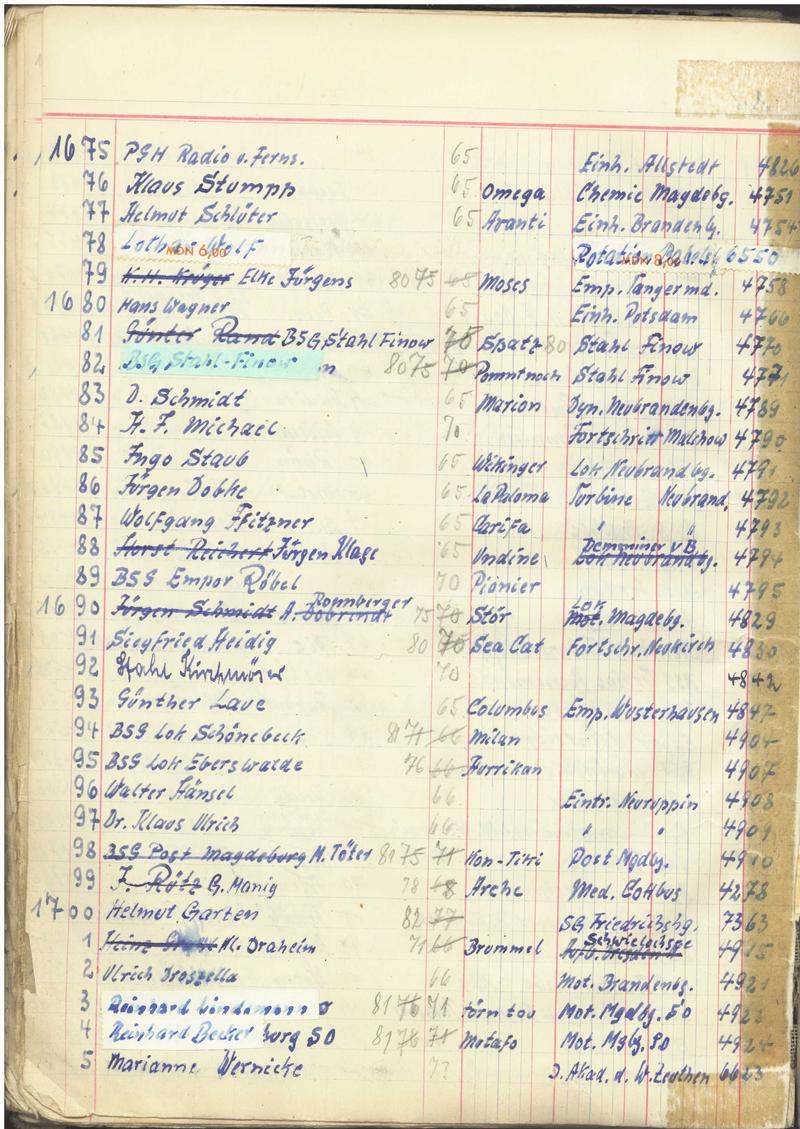 1675 PGH Radio u. Ferns. 65 Einh. Allstedt 4826
76 Klaus Stumpp 65 Omega Chemie Magdebg. 4751
77 Helmut Schlüter 65 Avanti Einh. Brandenbg. 4754
78 Lothar Wolf MDN 6,00 Rotation MDN 8,00 6550
79 K.H. Krüger Elke Jürgens 80 75 68 Moses Emp. Tangermd. 4758
1680 Hans Wagner 65 Einh. Potsdam 4766
81 Günter Rand BSG Stahl Finow 70 Spatz 80 Stahl Finow 4770
82 BSG Stahl-Finow n 80 75 70 Stahl Finow 4771
83 D. Schmidt 65 Marion Dyn. Neubrandenbg. 4789
84 H. F. Michael 70 Fortschritt Malchow 4790
85 Ingo Staub 65 Wikinger Lok Neubrandbg. 4791
86 Jürgen Dobke 65 La Paloma Turbine Neubrand. 4792
87 Wolfgang Pfitzner 65 Carifa " " 4793
88 Horst Reichert Jürgen Klage 65 Undine Lok Neubrandbg. Demminer v B 4794
89 BSG Empor Röbel 70 Pionier 4795
1690 Jürgen Schmidt A. Dobrindt Ronnberger 75 70 Stör Mot. Lok Magdebg. 4829
91 Siegfried Heidig 80 70 Sea Cat Fortschr. Neukirch 4830
92 Stahl Kirchmöser 70 4842
93 Günther Laue 65 Columbus Emp. Wusterhausen 4847
94 BSG Lok Schönebeck 81 71 66 Milan 4904
95 BSG Lok Eberswalde 76 66 Hurrikan 4907
96 Walter Hänsel 66 Eintr. Neuruppin 4908
97 Dr. Klaus Ulrich 66 " " 4909
98 BSG Post Magdeburg M. Töter 81 75 71 Kon-Tiki Post Mgdbg. 4910
99 J. Rütz G. Manig 78 68 Arche Med. Cottbus 4278
1700 Helmut Garten 82 77 SG Friedrichshg. 7363
1 Heinz Kl. Draheim 71 66 Brummel Schwielochsee 4915
2 Ulrich Droszella 66 Mot. Brandenbg. 4921
3 Reinhard Lindemann O 81 76 71 Mot. Mgdbg. SO 4923
4 Reinhard Becker burg SO 81 76 71 Motafo Mot. Mgbg. SO 4924
5 Marianne Wernicke 77 D. Akad. d. W. Zeuthen 6623